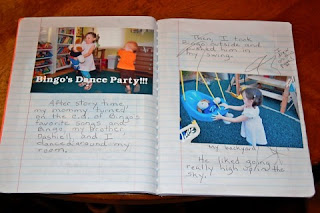 Bingo's Dance Party!!!
After story time,
my mommy turned
on the c.d. of Bingo's
favorite songs and
Bingo, my brother,
Dashiell, and I
danced around my
room.
Then, I took
Bingo outside and
pushed him in
my swing.
my backyard
He liked going
really high up in the
sky.